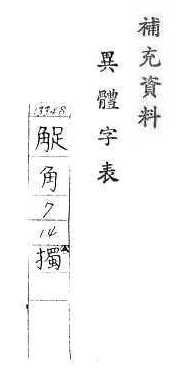 補充資料
異體字表
3348
角
7
14
擉